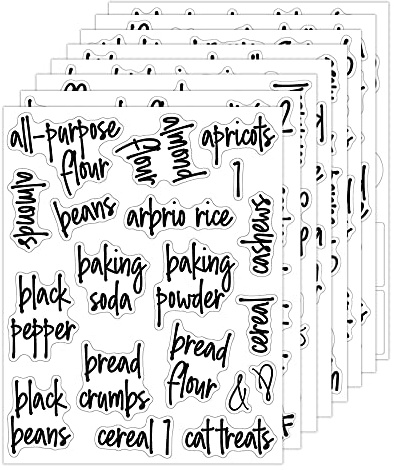 all-purpose
flour
almond
flour
apricots
1
almonds
beans
arprio rice
cashews
baking
soda
baking
powder
black
pepper
cereal
bread
crumbs
bread
flour
&
black
beans
cereal 1
cat treats